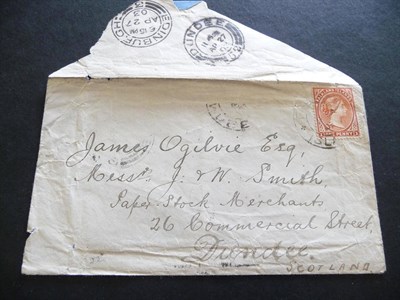 EDINBURGH
6 15 PM
AP 27
03
DUNDEE
AP 27
PENNY
James Ogilvie Esq,
Messrs J. & W. Smith,
Paper Stock Merchants
26 Commercial Street,
Dundee.
SCOTLAND